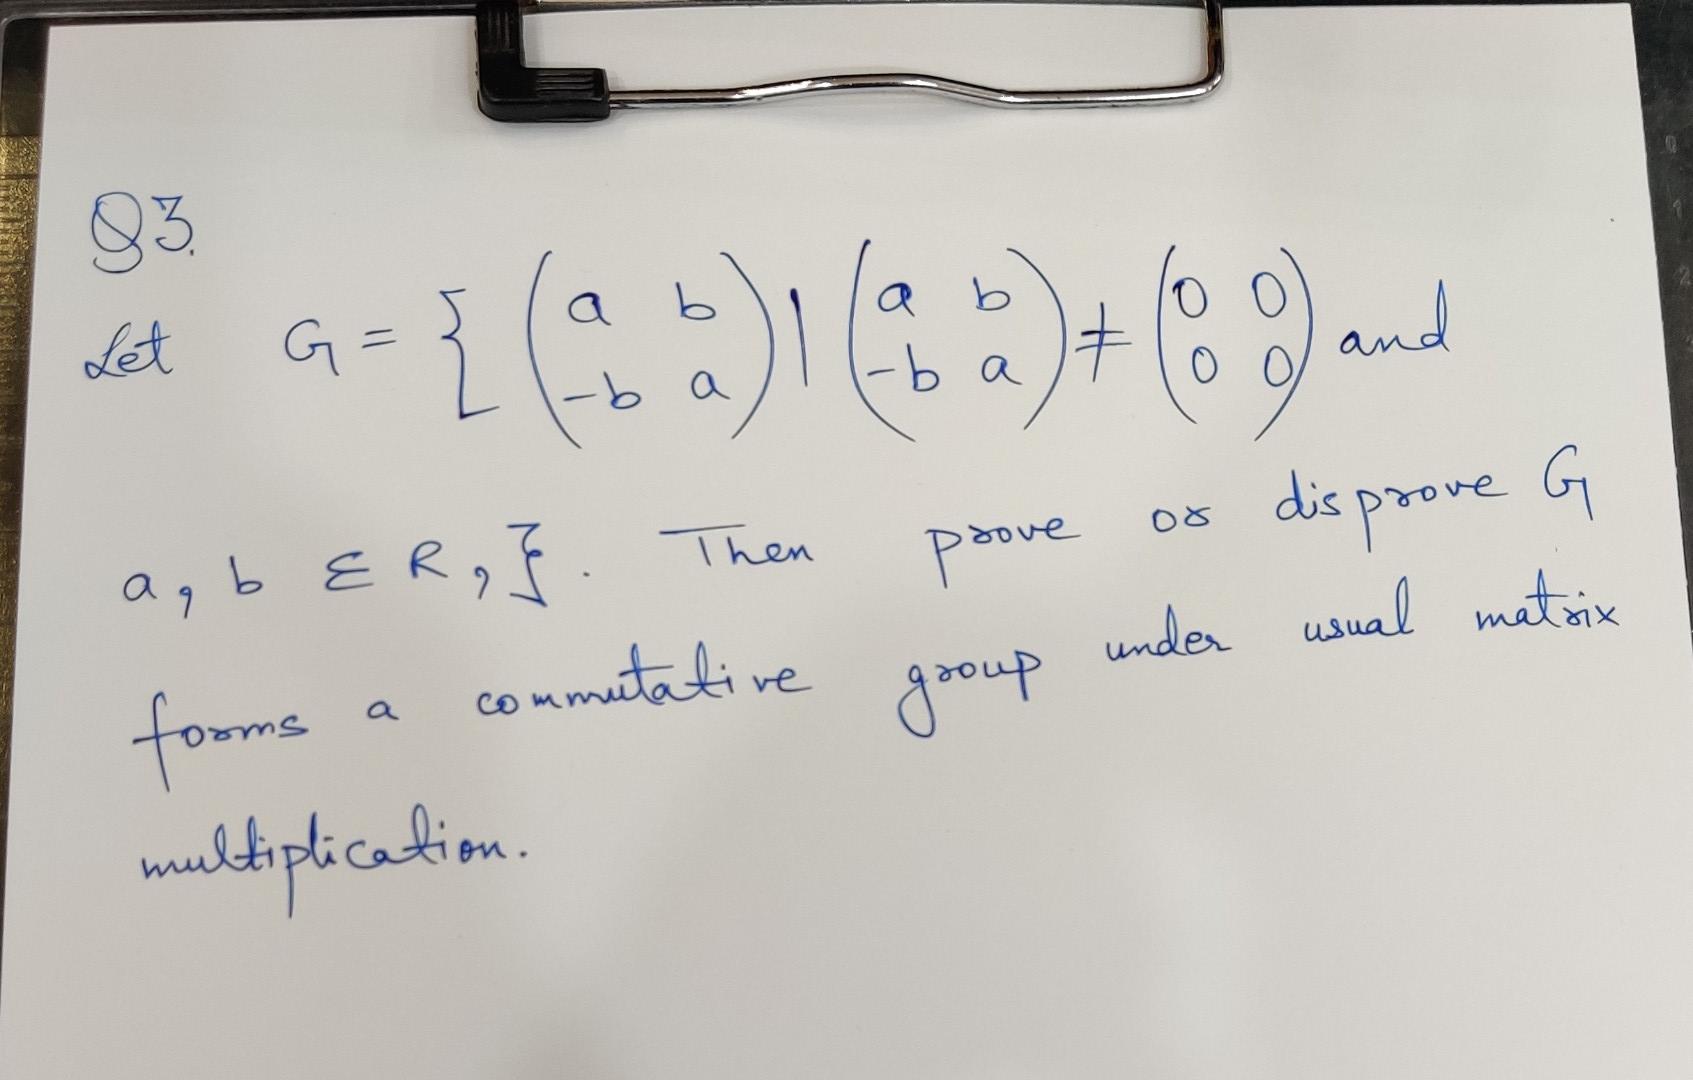 Q3.
Let G = { ( a b -b a ) | ( a b -b a ) ≠ ( 0 0 0 0 ) and
a, b ∈ R, }. Then prove or disprove G
forms a commutative group under usual matrix
multiplication.